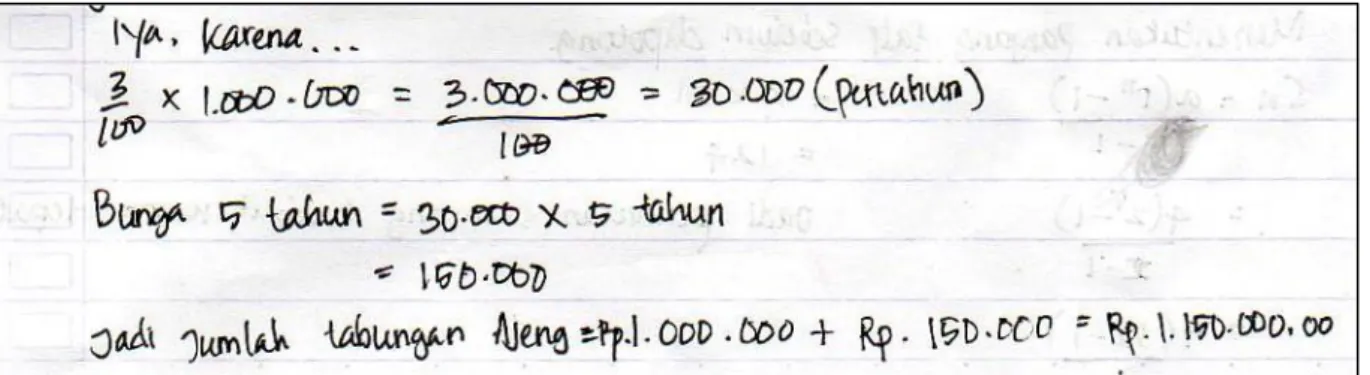 Iya, karena...
3/100 x 1.000.000 = 3.000.000/100 = 30.000 (pertahun)
Bunga 5 tahun = 30.000 x 5 tahun
= 150.000
Jadi Jumlah tabungan Ajeng = Rp.1.000.000 + Rp. 150.000 = Rp. 1.150.000,00